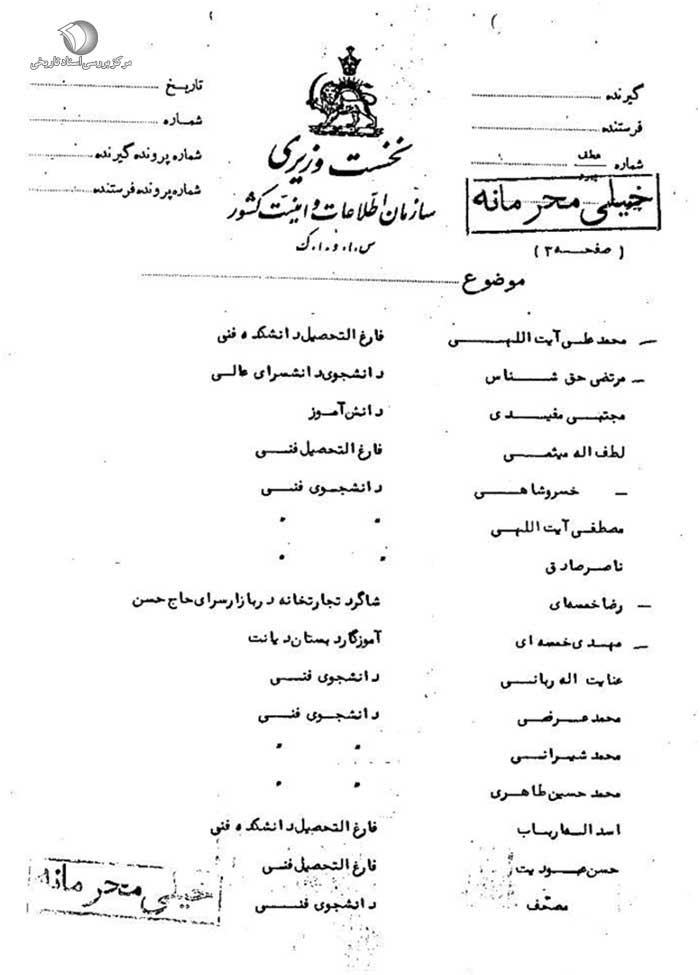 مرکز بررسی اسناد تاریخی
گیرنده
فرستنده
شماره عطف پیرو
تاریخ
شماره
شماره پرونده گیرنده
شماره پرونده فرستنده
نخست وزیری
سازمان اطلاعات و امنیت کشور
س.ا.و.ا.ک
خیلی محرمانه
( صفحه ۳ )
موضوع
— محمد علی آیت اللهی فارغ التحصیل دانشکده فنی
— مرتضی حق شناس دانشجوی دانشسرای عالی
مجتبی مفیدی دانش آموز
لطف اله میثمی فارغ التحصیل فنی
— خسروشاهی دانشجوی فنی
مصطفی آیت اللهی " "
ناصر صادق " "
— رضا خمسه‌ای شاگرد تجارتخانه در بازار سرای حاج حسن
— مهدی خمسه ای آموزگار دبستان دیانت
عنایت اله ربانی دانشجوی فنی
محمد عرضی دانشجوی فنی
محمد شیرانی " "
محمد حسین طاهری " "
اسد اله فاریاب فارغ التحصیل دانشکده فنی
حسن صودیت فارغ التحصیل فنی
مصحف دانشجوی فنی
خیلی محرمانه